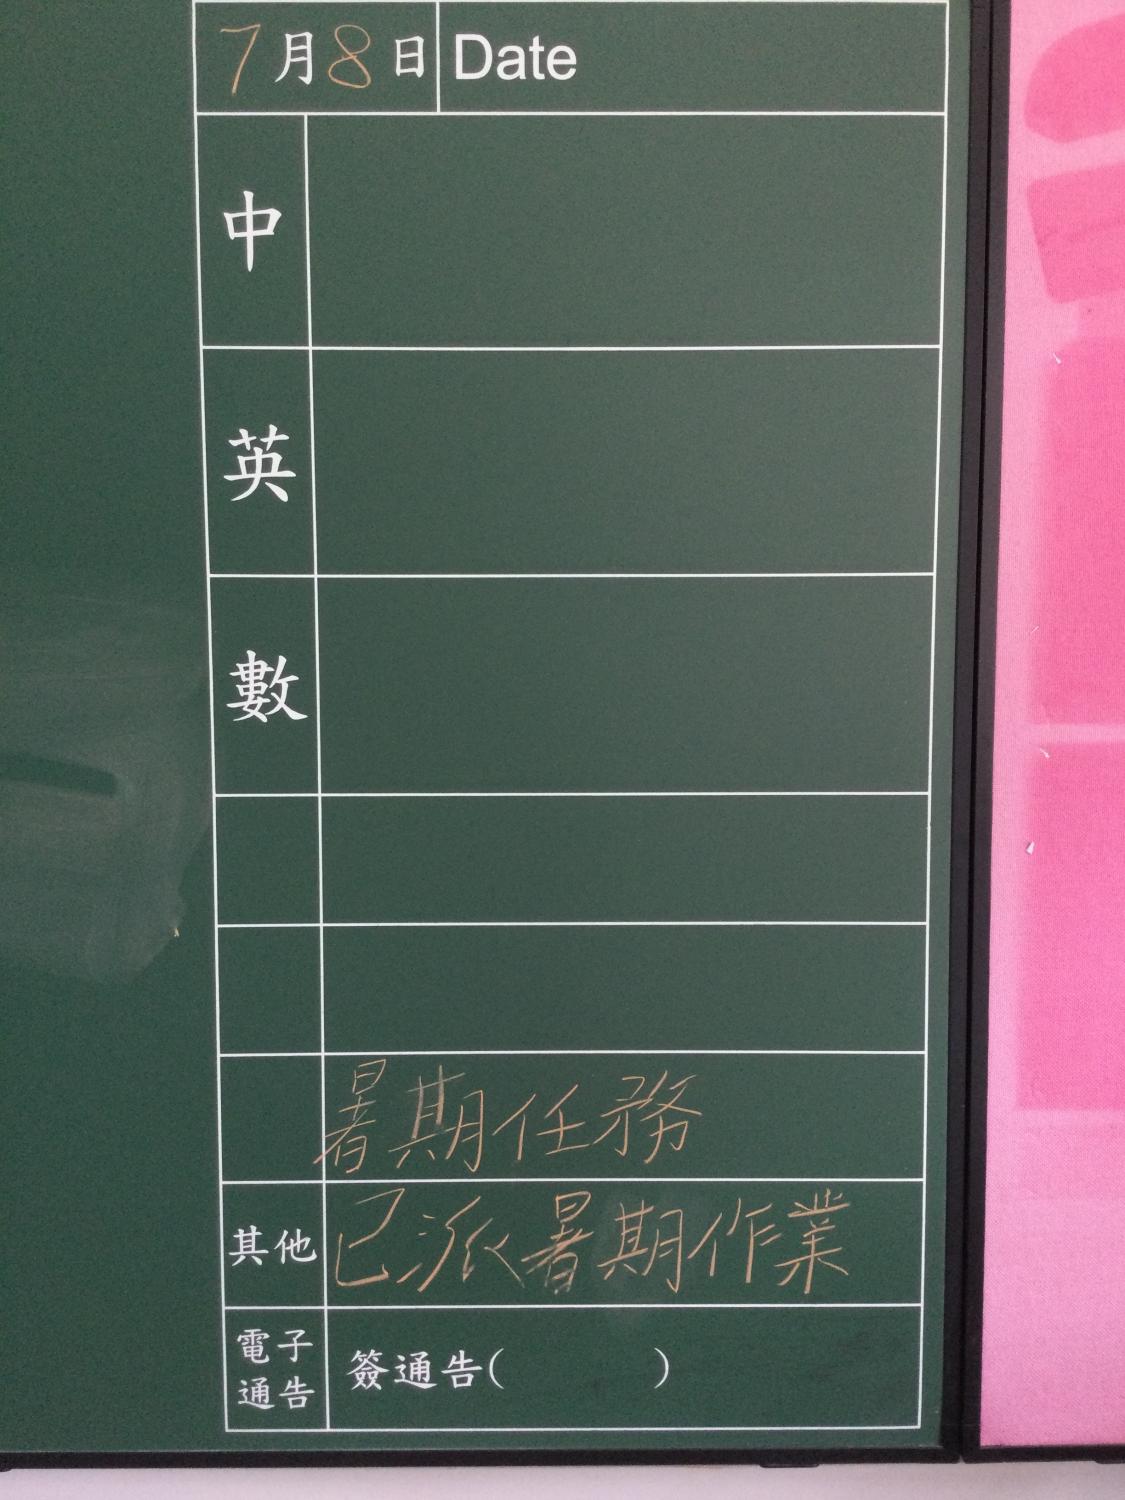 7月8日 Date
中
英
數
暑期任務
其他 已派暑期作業
電子通告 簽通告( )